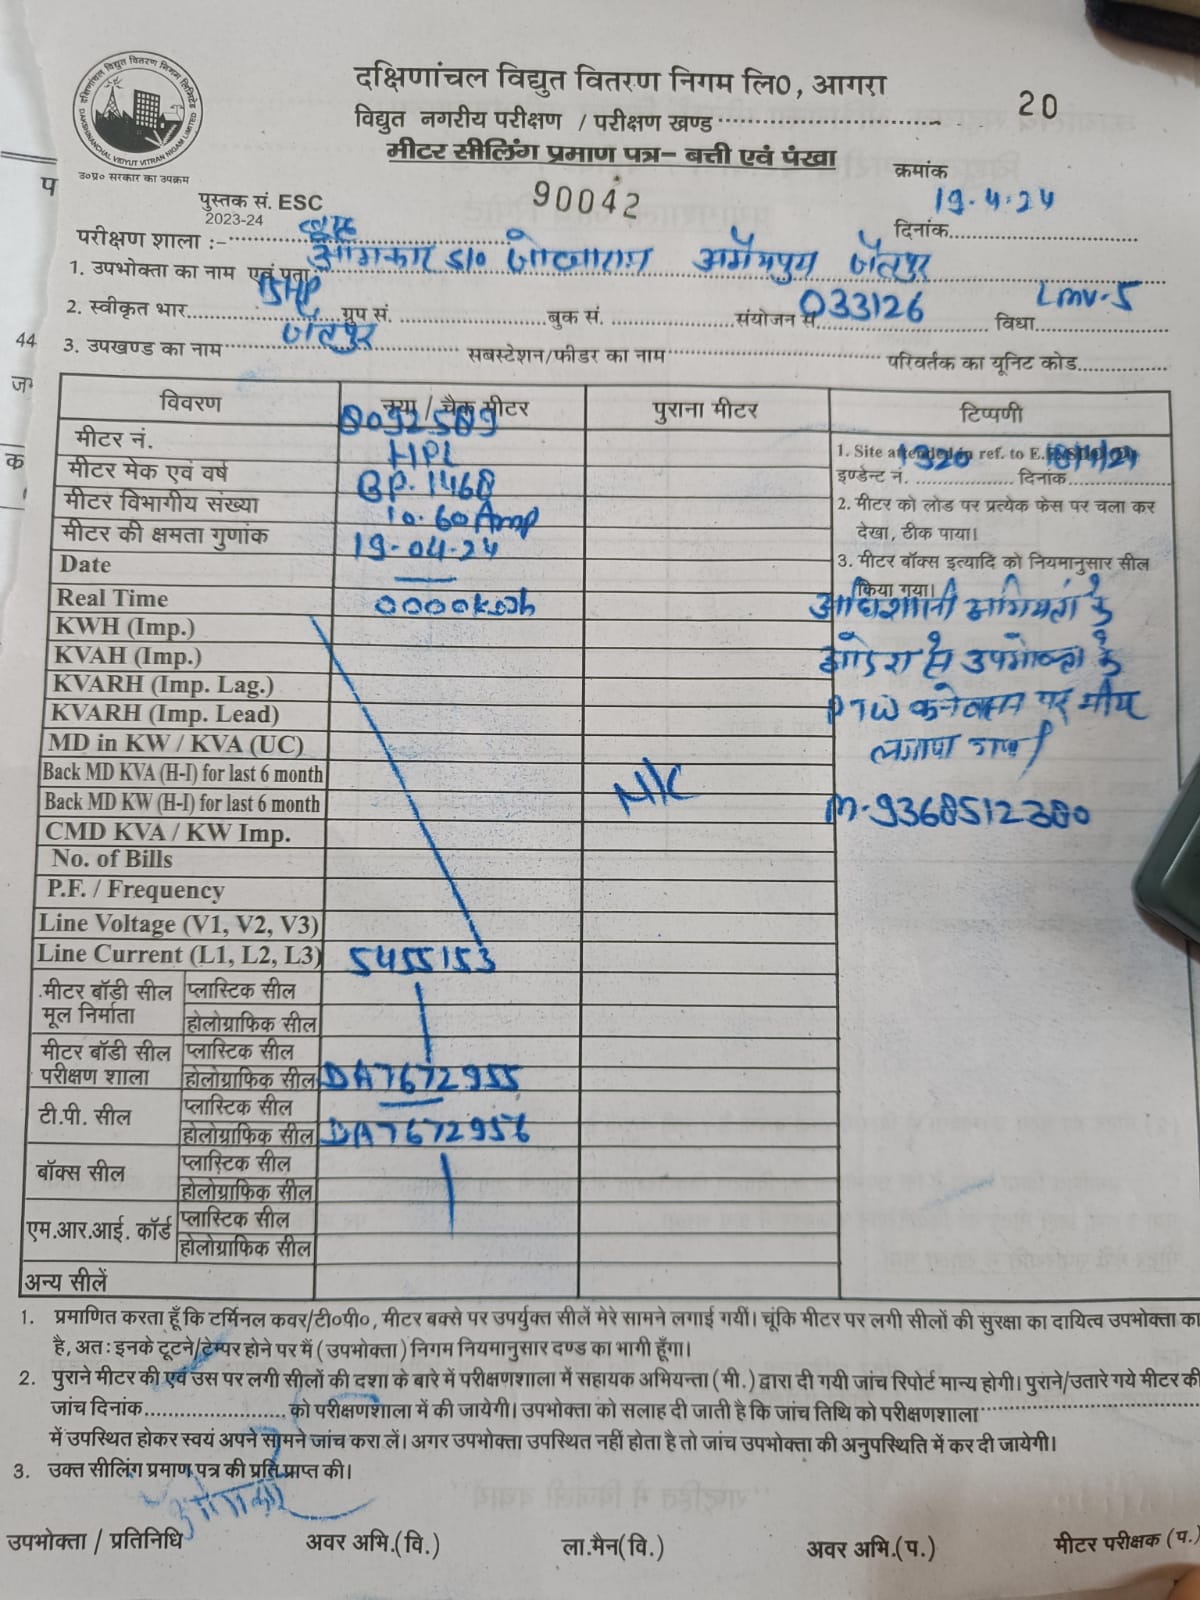 दक्षिणांचल विद्युत वितरण निगम लि0, आगरा
20
विद्युत नगरीय परीक्षण / परीक्षण खण्ड
मीटर सीलिंग प्रमाण पत्र- बत्ती एवं पंखा
उ०प्र० सरकार का उपक्रम
क्रमांक
पुस्तक सं. ESC 90042
2023-24
19.4.24
दिनांक
परीक्षण शाला :-
1. उपभोक्ता का नाम एवं पता जैतपुर
2. स्वीकृत भार 15HP ग्रुप सं. बुक सं. संयोजन सं. 033126 विधा LMV-5
3. उपखण्ड का नाम जैतपुर सबस्टेशन/फीडर का नाम परिवर्तक का यूनिट कोड
विवरण नया / चैक मीटर पुराना मीटर टिप्पणी
मीटर नं. 8092589
मीटर मेक एवं वर्ष HPL
मीटर विभागीय संख्या BP.1468
मीटर की क्षमता गुणांक 10.60Amp
Date 19-04-24
Real Time
KWH (Imp.) 0000kwh
KVAH (Imp.)
KVARH (Imp. Lag.)
KVARH (Imp. Lead)
MD in KW / KVA (UC)
Back MD KVA (H-I) for last 6 month
Back MD KW (H-I) for last 6 month
CMD KVA / KW Imp.
No. of Bills
P.F. / Frequency
Line Voltage (V1, V2, V3)
Line Current (L1, L2, L3)
5455153
N/C
1. Site attended in ref. to E.E.
इण्डेन्ट नं. 1320 दिनांक
2. मीटर को लोड पर प्रत्येक फेस पर चला कर
देखा, ठीक पाया।
3. मीटर बॉक्स इत्यादि को नियमानुसार सील
किया गया।
अधिशासी अभियंता के
उपभोक्ता के
PTW कनेक्शन पर
लगाया गया।
M-9368512380
मीटर बॉडी सील मूल निर्माता प्लास्टिक सील
होलोग्राफिक सील
मीटर बॉडी सील परीक्षण शाला प्लास्टिक सील
होलोग्राफिक सील DA7672955
टी.पी. सील प्लास्टिक सील
होलोग्राफिक सील DA7672956
बॉक्स सील प्लास्टिक सील
होलोग्राफिक सील
एम.आर.आई. कॉर्ड प्लास्टिक सील
होलोग्राफिक सील
अन्य सीलें
1. प्रमाणित करता हूँ कि टर्मिनल कवर/टी०पी०, मीटर बक्से पर उपर्युक्त सीलें मेरे सामने लगाई गयीं। चूंकि मीटर पर लगी सीलों की सुरक्षा का दायित्व उपभोक्ता का
है, अतः इनके टूटने/टेम्पर होने पर मैं (उपभोक्ता) निगम नियमानुसार दण्ड का भागी हूँगा।
2. पुराने मीटर की एवं उस पर लगी सीलों की दशा के बारे में परीक्षणशाला में सहायक अभियन्ता (मी.) द्वारा दी गयी जांच रिपोर्ट मान्य होगी। पुराने/उतारे गये मीटर की
जांच दिनांक को परीक्षणशाला में की जायेगी। उपभोक्ता को सलाह दी जाती है कि जांच तिथि को परीक्षणशाला
में उपस्थित होकर स्वयं अपने सामने जांच करा लें। अगर उपभोक्ता उपस्थित नहीं होता है तो जांच उपभोक्ता की अनुपस्थिति में कर दी जायेगी।
3. उक्त सीलिंग प्रमाण पत्र की प्रति प्राप्त की।
उपभोक्ता / प्रतिनिधि अवर अभि.(वि.) ला.मैन(वि.) अवर अभि.(प.) मीटर परीक्षक (प.)